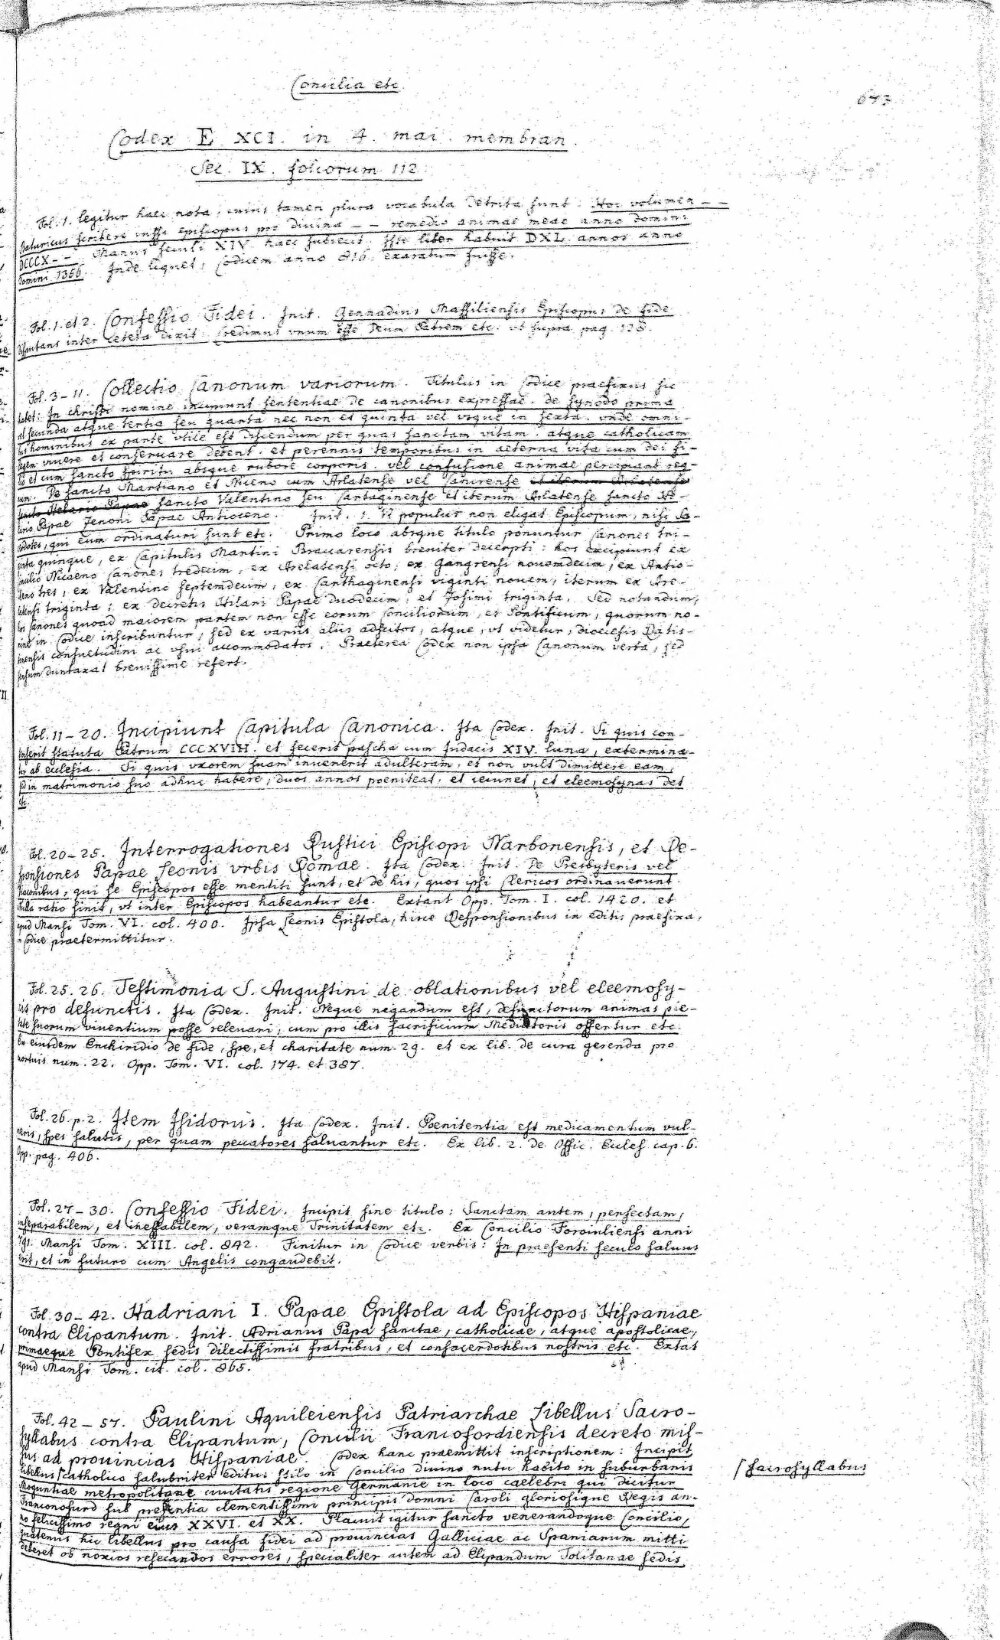 Concilia etc.
643
Codex E XCI. in 4. mai. membran.
Sec. IX. foliorum 112.
Fol. 1. legitur haec nota, cuius tamen plura vocabula detrita sunt: Hoc volumen – –
Baturicus scribere iussit episcopus pro divina – – remedio animae meae anno domini
DCCCX – –. Manus seculi XIV. haec subiecit: Iste liber habuit DXL annos anno
Domini 1356. Inde liquet, Codicem anno 816. exaratum fuisse.
Fol. 1. et 2. Confessio Fidei. Init. Gennadius Massiliensis Episcopus de fide
disputans inter cetera dixit: Credimus vnum esse Deum Patrem etc. vt supra pag. 128.
Fol. 3–11. Collectio Canonum variorum. Titulus in Codice praefixus sic
habet: In christi nomine incipiunt sententiae de canonibus expressae. de synodo prima
et secunda atque tertia seu quarta nec non et quinta vel vsque in sexta. vnde omni-
bus hominibus ex parte vtile est discendum per quas sanctam vitam. atque catholicam
vivere et conseruare debent. et perennis temporibus in aeterna vita cum dei fi-
lio et cum sancto spiritu absque rubore corporis. vel confusione animae percipiant reg-
num. De sancto Martiano et Niceno cum Arlatense vel Sancirense et iterum Arlatense
sancto Helario Papae sancto Valentino seu Cartaginense et iterum Arlatense sancto He-
lario Papae Zenoni Papae Antioceno. Init. 1. Vt populus non eligat Episcopum, nisi Sa-
cerdotes, qui eum ordinaturi sunt etc. Primo loco absque titulo ponuntur Canones tri-
ginta quinque, ex Capitulis Martini Bracarensis breviter decerpti: hos excipiunt ex
Concilio Nicaeno Canones tredecim, ex Arelatensi octo, ex Gangrensi novemdecim, ex Antio-
cheno tres, ex Valentino septemdecim, ex Carthaginensi viginti novem, iterum ex Are-
latensi triginta; ex decretis Hilari Papae duodecim, et Zosimi triginta. Sed notandum,
hos Canones quoad maiorem partem non esse eorum Conciliorum, et Pontificum, quorum no-
mina in Codice inscribuntur, sed ex variis aliis adscitos, atque, vt videtur, dioecesis Ratis-
bonensis consuetudini ac vsui accommodatos. Praeterea Codex non ipsa Canonum verba, sed
sensum duntaxat brevissime refert.
Fol. 11–20. Incipiunt Capitula Canonica. Ita Codex. Init. Si quis con-
tempserit statuta Patrum CCCXVIII. et fecerit pascha cum Judaeis XIV. luna, extermina-
tus ab ecclesia. Si quis vxorem suam invenerit adulteram, et non vult dimittere eam,
sed in matrimonio suo adhuc habere, duos annos poeniteat. et ieiunet, et eleemosynas det
etc.
Fol. 20–25. Interrogationes Rustici Episcopi Narbonensis, et Re-
sponsiones Papae Leonis vrbis Romae. Ita Codex. Init. De Presbyteris vel
Diaconibus, qui se Episcopos esse mentiti sunt, et de his, quos ipsi Clericos ordinauerunt
Nulla ratio sinit, vt inter Episcopos habeantur etc. Extant Opp. Tom. I. col. 1420. et
apud Mansi Tom. VI. col. 400. Ipsa Leonis Epistola, hisce Responsionibus in editis praefixa,
in Codice praetermittitur.
Fol. 25. 26. Testimonia S. Augustini de oblationibus vel eleemosy-
nis pro defunctis. Ita Codex. Init. Neque negandum est, defunctorum animas pie-
tate suorum viventium posse releuari, cum pro illis sacrificium Mediatoris offertur etc.
Ex eiusdem Enchiridio de fide, spe, et charitate num. 29. et ex lib. de cura gerenda pro
mortuis num. 22. Opp. Tom. VI. col. 174. et 387.
Fol. 26. p. 2. Item Isidorus. Ita Codex. Init. Poenitentia est medicamentum vul-
neris, spes salutis, per quam peccatores saluantur etc. Ex lib. 2. de Offic. Eccles. cap. 6.
Opp. pag. 406.
Fol. 27–30. Confessio Fidei. Incipit sine titulo: Sanctam autem, perfectam,
inseparabilem, et ineffabilem, veramque Trinitatem etc. Ex Concilio Foroiuliensi anni
791. Mansi Tom. XIII. col. 842. Finitur in Codice verbis: In praesenti seculo saluus
erit, et in futuro cum Angelis congaudebit.
Fol. 30–42. Hadriani I. Papae Epistola ad Episcopos Hispaniae
contra Elipantum. Init. Adrianus Papa sanctae, catholicae, atque apostolicae,
primaeque Pontifex sedis dilectissimis fratribus, et consacerdotibus nostris etc. Extat
apud Mansi Tom. cit. col. 865.
Fol. 42–57. Paulini Aquileiensis Patriarchae Libellus Sacro-
syllabus contra Elipantum, Concilii Francofordiensis decreto mis-
sus ad prouincias Hispaniae. Codex hanc praemittit inscriptionem: Incipit
libellus catholico salubriter editus stilo in Concilio divino nutu habito in suburbanis
Moguntiae metropolitane ciuitatis regione Germanie in loco caelebri qui dicitur
Franconofurd sub presentia clementissimi principis domni Caroli gloriosique Regis an-
no felicissimo regni eius XXVI. et XX. Placuit igitur sancto venerandoque Concilio,
quatenus hic libellus pro causa fidei ad prouincias Galliciae ac Spaniarum mitti
deberet ob noxios resecandos errores, specialiter autem ad Elipandum Tolitanae sedis
/ sacrosyllabus